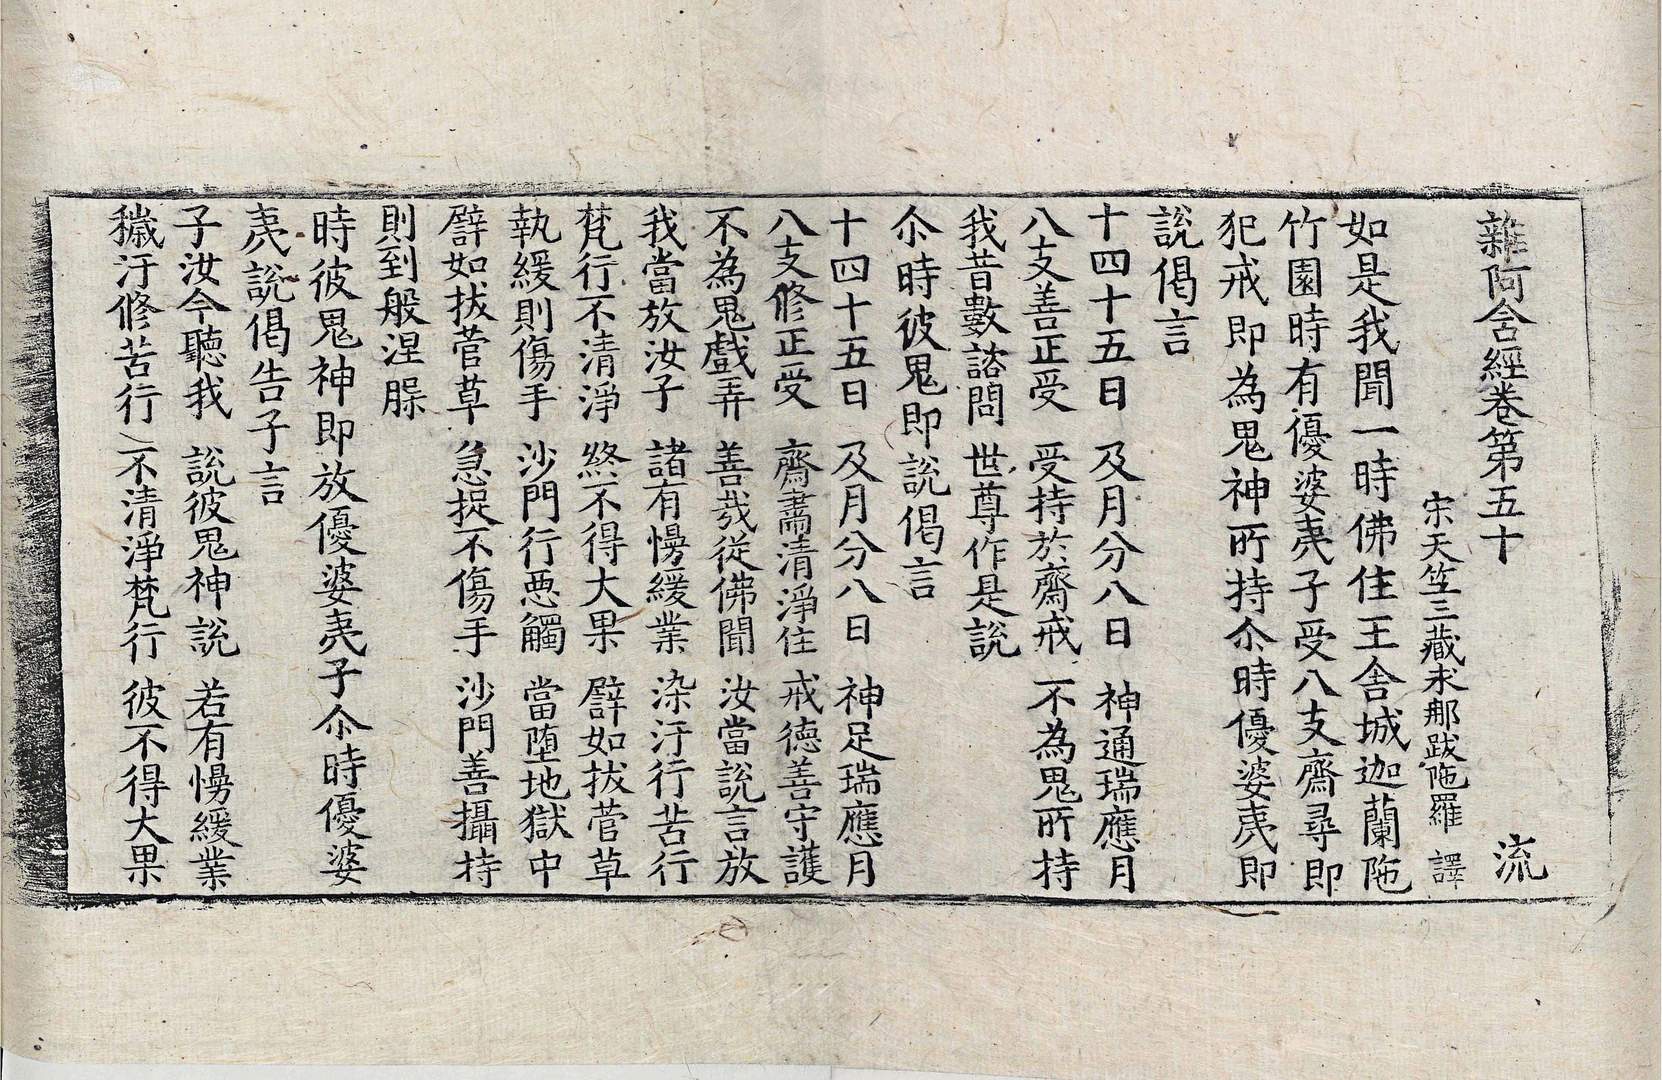 雜阿含經卷第五十 流
宋天竺三藏求那䟦陁羅 譯
如是我聞一時佛住王舍城迦蘭陁
竹園時有優婆夷子受八支齋尋即
犯戒即為鬼神所持尒時優婆夷即
說偈言
十四十五日 及月分八日 神通瑞應月
八支善正受 受持於齋戒 不為鬼所持
我昔數諮問 世尊作是說
尒時彼鬼即說偈言
十四十五日 及月分八日 神足瑞應月
八支修正受 齋肅清淨住 戒德善守護
不為鬼戲弄 善哉從佛聞 汝當說言放
我當放汝子 諸有慢緩業 染汙行苦行
梵行不清淨 終不得大果 譬如拔菅草
執緩則傷手 沙門行惡觸 當墮地獄中
譬如拔菅草 急捉不傷手 沙門善攝持
則到般涅槃
時彼鬼神即放優婆夷子尒時優婆
夷說偈告子言
子汝今聽我 說彼鬼神說 若有慢緩業
穢汙修苦行 不清淨梵行 彼不得大果